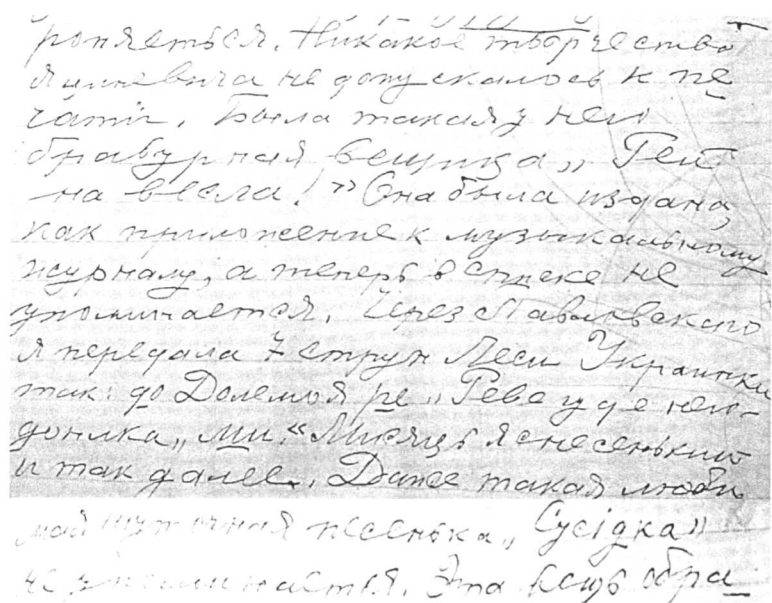 роняеться. Никакое творчество
Яциневича не допускалось к пе
чати. Была такая у него
бравурная вещица „Гей
на весла!” Она была издана,
как приложение к музыкальному
журналу, а теперь в списке не
упоминается. Через Павловского
я передала 7 струн Леси Украинки
так: до Долемоя ре „Реве гуде него-
донька„ ми.“ Мисяць яснесенький
и так далее. Даже такая люби
мая шуточная песенька „Сусідка”
не упоминается. Эта вещь обра